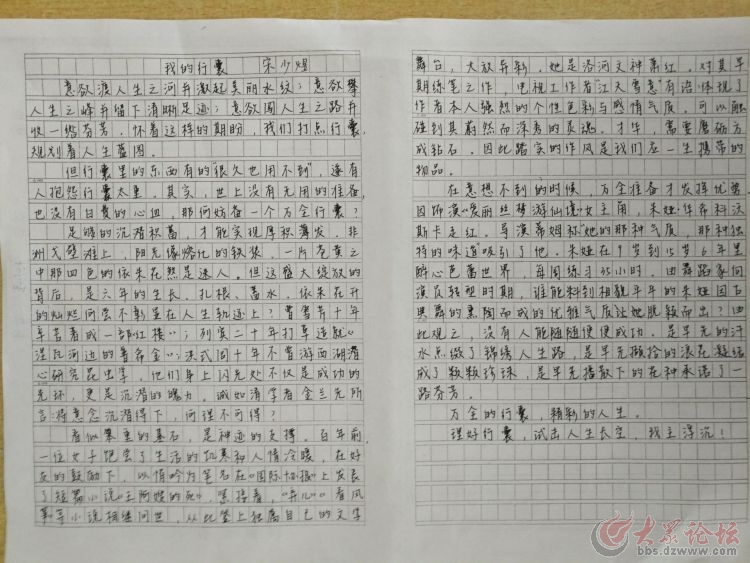 我的行囊 宋少熠
意欲渡人生之河并激起美丽水纹；意欲攀
人生之峰并留下清晰足迹；意欲闯人生之路并
收一络芬芳，怀着这样的期盼，我们打点行囊，
规划着人生蓝图。
但行囊里的东西有的“很久也用不到”，遂有
人抱怨行囊太重。其实，世上没有无用的准备，
也没有白费的心血，那何妨备一个万全行囊？
足够的沉潜积蓄，才能实现厚积薄发。非
洲戈壁滩上，阳光像熔化的铁浆，一片苍黄之
中那四色的依米花煞是迷人。但这盛大绽放的
背后，是六年的生长、扎根、蓄水，依米花开
的灿烂何尝不彰显在人生轨迹上？曹雪芹十年
辛苦著成一部红楼；列宾二十年打草造就
涅瓦河边的；法式因十年不窗游西湖潜
心研究昆虫学，他们身上闪光处不仅是成功的
光环，更是沉潜的魄力。诚如清学者金兰先所
言：将意念沉潜得下，何理不可得？
看似笨重的基石，是神迹的支撑。百年前，
一位女子饱尝了生活的饥寒和人情冷暖，在好
友的鼓励下，以悄吟为笔名在《国际协报》上发表
了短篇小说《王阿嫂的死》，紧接着，《弃儿》《看风
筝》等小说相继问世，从此登上独属自己的文学
舞台，大放异彩。她是洛河文神萧红。对其早
期练笔之作，电视工作者“江天雪意”有语：体现了
作者本人强烈的个性色彩与感情气质，可以触
碰到其蔚然而深秀的灵魂。才华，需要磨砺方
成钻石。因此踏实的作风是我们应一生携带的
物品。
在意想不到的时候，万全准备才发挥优势。
因饰演《爱丽丝梦游仙境》女主角，朱娅·华希科沃
斯卡走红。导演蒂姆称“她的那种气质，那种独
特的味道”吸引了他。朱娅在9岁到15岁6年里
醉心芭蕾世界，每周练习35小时。由舞蹈家向
演员转型的时期，谁能料到相貌平平的朱娅因古
典舞的熏陶而成的优雅气质让她脱颖而出？由
此观之，没有人能随随便便成功，是早先的汗
水点缀了锦绣人生路，是早先撷拾的浪花凝结
成了颗颗珍珠，是早先播散下的花种承诺了一
路芬芳。
万全的行囊，精彩的人生。
理好行囊，试击人生长空，我主浮沉！
大众论坛
bbs.dzwww.com